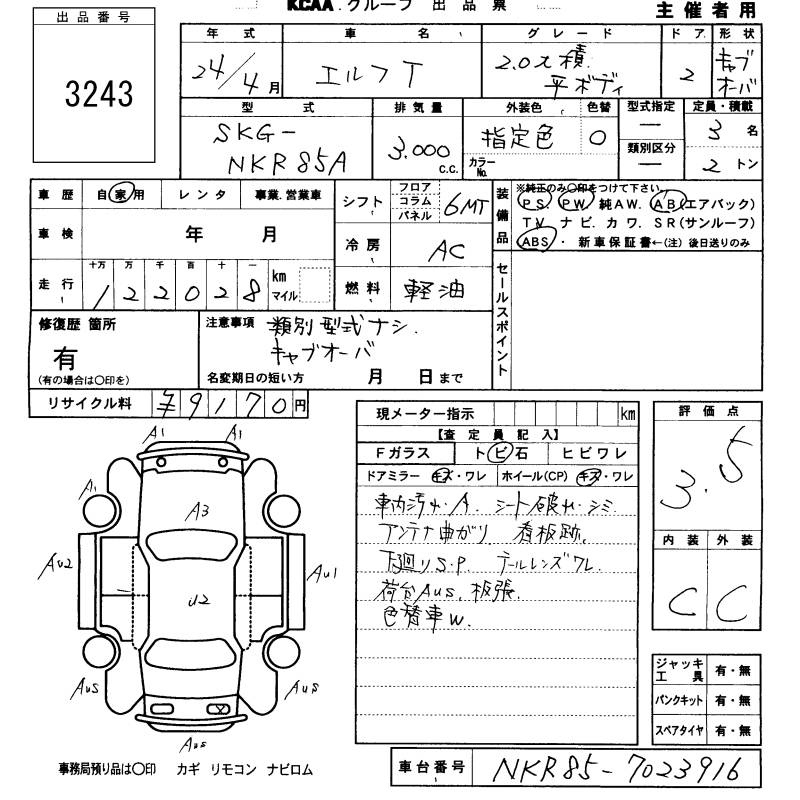 KCAA.グループ 出品票
主催者用
出品番号
3243
年式 車名 グレード ドア 形状
24/4月 エルフT 2.0t積 平ボディ 2 キャブオーバ
型式 排気量 外装色 色替 型式指定 定員・積載
SKG-
NKR85A
3.000 c.c.
指定色 0
カラーNo.
ー
類別区分
ー
3名
2トン
車歴 自家用 レンタ 事業.営業車
シフト フロア コラム パネル 6MT
装備品
※純正のみ○印をつけて下さい。
PS PW 純AW. AB(エアバック)
TV ナビ. カワ. SR(サンルーフ)
ABS・新車保証書←(注)後日送りのみ
車検 年 月
冷房 AC
走行 十万 万 千 百 十 一
122028 km マイル
燃料 軽油
セールスポイント
修復歴 箇所
有
(有の場合は○印を)
注意事項 類別型式ナシ.
キャブオーバ
名変期日の短い方 月 日まで
リサイクル料 ¥9170円
現メーター指示 km
【査定員記入】
Fガラス トビ石 ヒビワレ
ドアミラー キズ・ワレ ホイール(CP) キズ・ワレ
車内汚れ・A. シート破れ・シミ
アンテナ曲がり 看板跡.
下廻りS.P. テールレンズワレ
荷台AuS. 板張.
色替車W.
評価点
3.5
内装 外装
C C
A1 A1
A1
A3
Au2
Au1
U2
AuS
AuS
AuS
ジャッキ工具 有・無
パンクキット 有・無
スペアタイヤ 有・無
事務局預り品は○印 カギ リモコン ナビロム
車台番号 NKR85-7023916